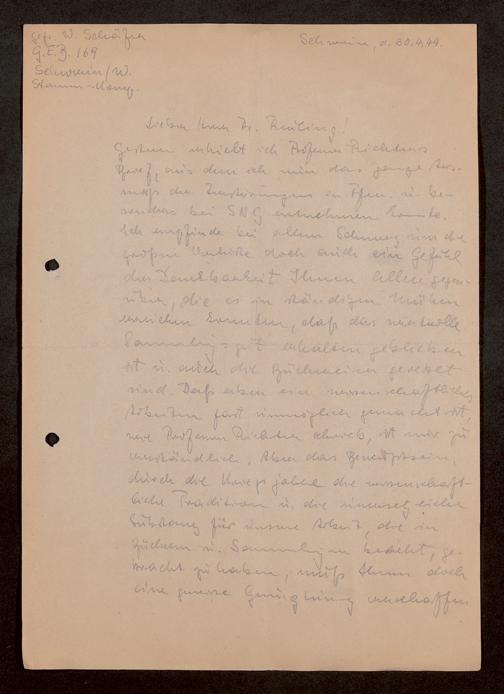 Gefr. W. Schäfer
G.E.B. 169
Schwerin/W.
Stamm-Komp.
Schwerin, d. 30.4.44.
Lieber Herr Dr.
Gestern erhielt ich Professor Richters
Brief, aus dem ich nun das ganze Aus-
maß der Zerstörungen in Ffm. u. be-
sonders bei SNG entnehmen konnte.
Ich empfinde bei allem Schmerz um die
großen Verluste doch auch ein Gefühl
der Dankbarkeit Ihnen allen gegen-
über, die es in ständigen Mühen
erreichen konnten, daß das wertvolle
Sammlungsgut erhalten geblieben
ist u. auch die Büchereien gerettet
sind. Daß eben ein wissenschaftliches
Arbeiten fast unmöglich gemacht ist,
wie Professor Richter schrieb, ist mir zu
verständlich. Aber das Bewußtsein,
durch die Kriegsjahre die wissenschaft-
liche Tradition u. die
Substanz für unsere Arbeit, die in
Büchern u. Sammlungen besteht, ge-
bracht zu haben, muß Ihnen doch
eine gewisse Genugtuung verschaffen